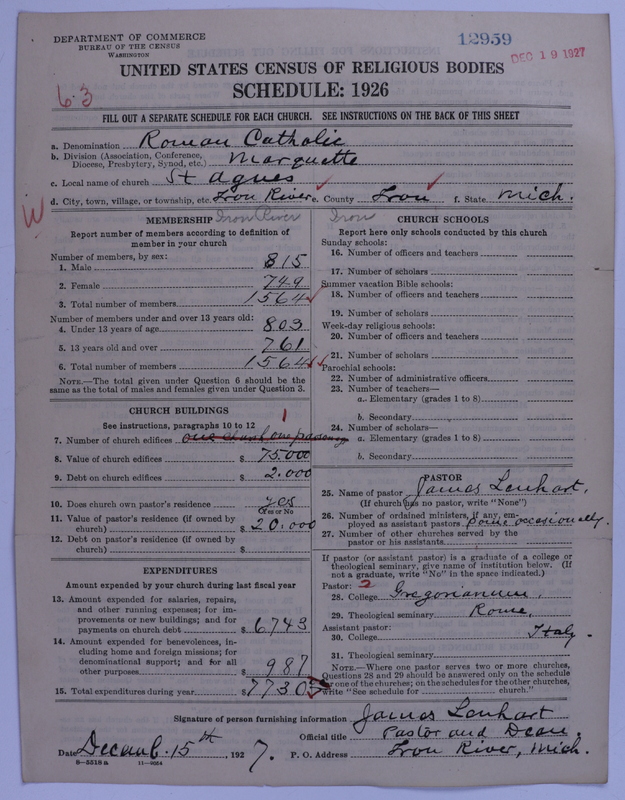 DEPARTMENT OF COMMERCE
BUREAU OF THE CENSUS
WASHINGTON
12959
DEC 19 1927
UNITED STATES CENSUS OF RELIGIOUS BODIES
SCHEDULE: 1926
63
FILL OUT A SEPARATE SCHEDULE FOR EACH CHURCH. SEE INSTRUCTIONS ON THE BACK OF THIS SHEET
a. Denomination Roman Catholic
b. Division (Association, Conference, Diocese, Presbytery, Synod, etc.) Marquette
c. Local name of church St Agnes
d. City, town, village, or township, etc. Iron River e. County Iron f. State Mich.
W
Iron River Iron
MEMBERSHIP
Report number of members according to definition of
member in your church
Number of members, by sex:
1. Male 815
2. Female 749
3. Total number of members 1564
Number of members under and over 13 years old:
4. Under 13 years of age 803
5. 13 years old and over 761
6. Total number of members 1564
NOTE.—The total given under Question 6 should be the
same as the total of males and females given under Question 3.
CHURCH BUILDINGS
See instructions, paragraphs 10 to 12
1
7. Number of church edifices one church one parsonage
8. Value of church edifices $ 75.000
9. Debt on church edifices $ 2.000
10. Does church own pastor's residence yes
Yes or No
11. Value of pastor's residence (if owned by
church) $ 20.000
12. Debt on pastor's residence (if owned by
church) $
EXPENDITURES
Amount expended by your church during last fiscal year
13. Amount expended for salaries, repairs,
and other running expenses; for im-
provements or new buildings; and for
payments on church debt $ 6743
14. Amount expended for benevolences, in-
cluding home and foreign missions; for
denominational support; and for all
other purposes $ 987
15. Total expenditures during year $ 7730
CHURCH SCHOOLS
Report here only schools conducted by this church
Sunday schools:
16. Number of officers and teachers
17. Number of scholars
Summer vacation Bible schools:
18. Number of officers and teachers
19. Number of scholars
Week-day religious schools:
20. Number of officers and teachers
21. Number of scholars
Parochial schools:
22. Number of administrative officers
23. Number of teachers—
a. Elementary (grades 1 to 8)
b. Secondary
24. Number of scholars—
a. Elementary (grades 1 to 8)
b. Secondary
PASTOR
25. Name of pastor James Lenhart,
(If church has no pastor, write "None")
26. Number of ordained ministers, if any, em-
ployed as assistant pastors some occasionally.
27. Number of other churches served by the
pastor or his assistants
If pastor (or assistant pastor) is a graduate of a college or
theological seminary, give name of institution below. (If
not a graduate, write "No" in the space indicated.)
Pastor:
28. College Gregorianum,
29. Theological seminary Rome,
Assistant pastor:
30. College Italy.
31. Theological seminary
NOTE.—Where one pastor serves two or more churches,
Questions 28 and 29 should be answered only on the schedule
for one of the churches; on the schedules for the other churches,
write "See schedule for church."
Signature of person furnishing information James Lenhart
Official title Pastor and Dean,
Date Decemb. 15th, 1927. P. O. Address Iron River, Mich.
8—5518 a 11—9064